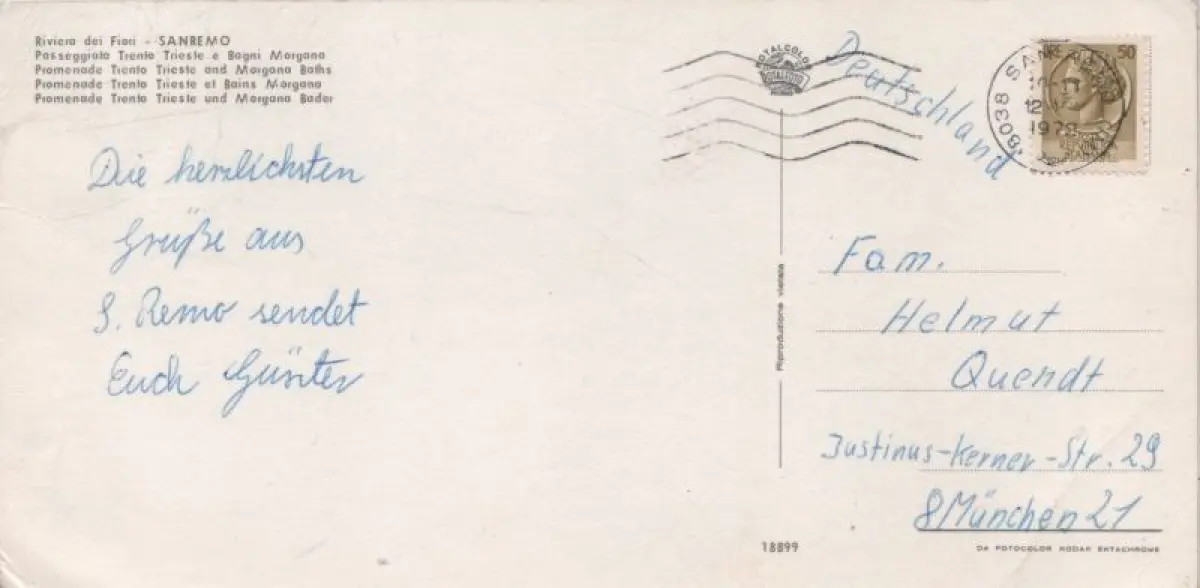 Riviera dei Fiori - SANREMO
Passeggiata Trento Trieste e Bagni Morgana
Promenade Trento Trieste and Morgana Baths
Promenade Trento Trieste et Bains Morgana
Promenade Trento Trieste und Morgana Bader
Die herzlichsten
Grüße aus
S. Remo sendet
Euch Günter
TOTALCOLOR
Deutschland
50
18038 SANREMO
12
197
Riproduzione vietata
Fam.
Helmut
Quendt
Justinus-Kerner-Str. 29
8 München 21
18899
DA FOTOCOLOR KODAK EKTACHROME